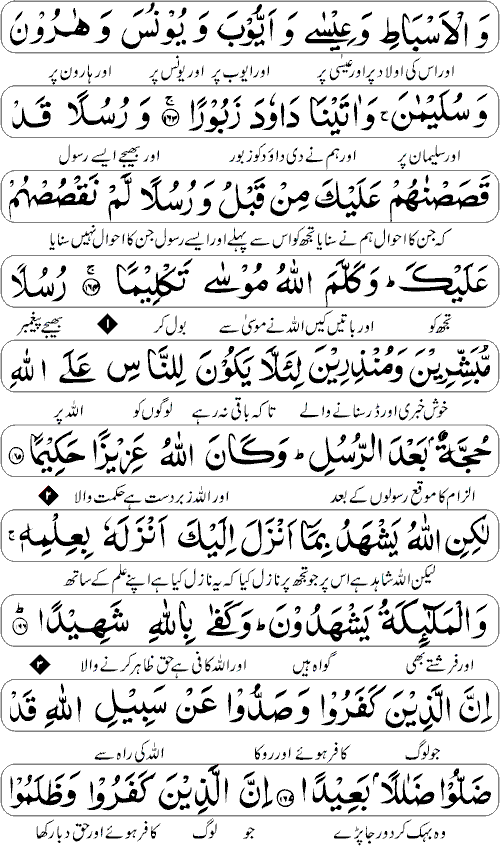 وَ الْاَسْبَاطِ وَ عِيْسٰى وَ اَيُّوْبَ وَ يُوْنُسَ وَ هٰرُوْنَ
اور اس کی اولاد پر اور عیسٰی پر اور ایوب پر اور یونس پر اور ہارون پر
وَ سُلَيْمٰنَ ۚ وَ اٰتَيْنَا دَاوٗدَ زَبُوْرًا ۚ ﴿۱۶۳﴾ وَ رُسُلًا قَدْ
اور سلیمان پر اور ہم نے دی داؤد کو زبور اور بھیجے ایسے رسول
قَصَصْنٰهُمْ عَلَيْكَ مِنْ قَبْلُ وَ رُسُلًا لَّمْ نَقْصُصْهُمْ
کہ جن کا احوال ہم نے سنایا تجھ کو اس سے پہلے اور ایسے رسول جن کا احوال نہیں سنایا
عَلَيْكَ ؕ وَ كَلَّمَ اللّٰهُ مُوْسٰى تَكْلِيْمًا ۚ ﴿۱۶۴﴾ رُسُلًا
تجھ کو اور باتیں کیں اللہ نے موسیٰ سے بول کر ۱ بھیجے پیغمبر
مُّبَشِّرِيْنَ وَ مُنْذِرِيْنَ لِئَلَّا يَكُوْنَ لِلنَّاسِ عَلَى اللّٰهِ
خوش خبری اور ڈر سنانے والے تاکہ باقی نہ رہے لوگوں کو اللہ پر
حُجَّةٌۢ بَعْدَ الرُّسُلِ ؕ وَ كَانَ اللّٰهُ عَزِيْزًا حَكِيْمًا ﴿۱۶۵﴾
الزام کا موقع رسولوں کے بعد اور اللہ زبردست ہے حکمت والا ۲
لٰكِنِ اللّٰهُ يَشْهَدُ بِمَاۤ اَنْزَلَ اِلَيْكَ اَنْزَلَهٗ بِعِلْمِهٖ ۚ
لیکن اللہ شاہد ہے اس پر جو تجھ پر نازل کیا کہ یہ نازل کیا ہے اپنے علم کے ساتھ
وَ الْمَلٰٓئِكَةُ يَشْهَدُوْنَ ؕ وَ كَفٰى بِاللّٰهِ شَهِيْدًا ؕ ﴿۱۶۶﴾
اور فرشتے بھی گواہ ہیں اور اللہ کافی ہے حق ظاہر کرنے والا ۳
اِنَّ الَّذِيْنَ كَفَرُوْا وَ صَدُّوْا عَنْ سَبِيْلِ اللّٰهِ قَدْ
جو لوگ کافر ہوئے اور روکا اللہ کی راہ سے
ضَلُّوْا ضَلٰلًۢا بَعِيْدًا ﴿۱۶۷﴾ اِنَّ الَّذِيْنَ كَفَرُوْا وَ ظَلَمُوْا
وہ بہک کر دور جا پڑے جو لوگ کافر ہوئے اور حق دبا رکھا